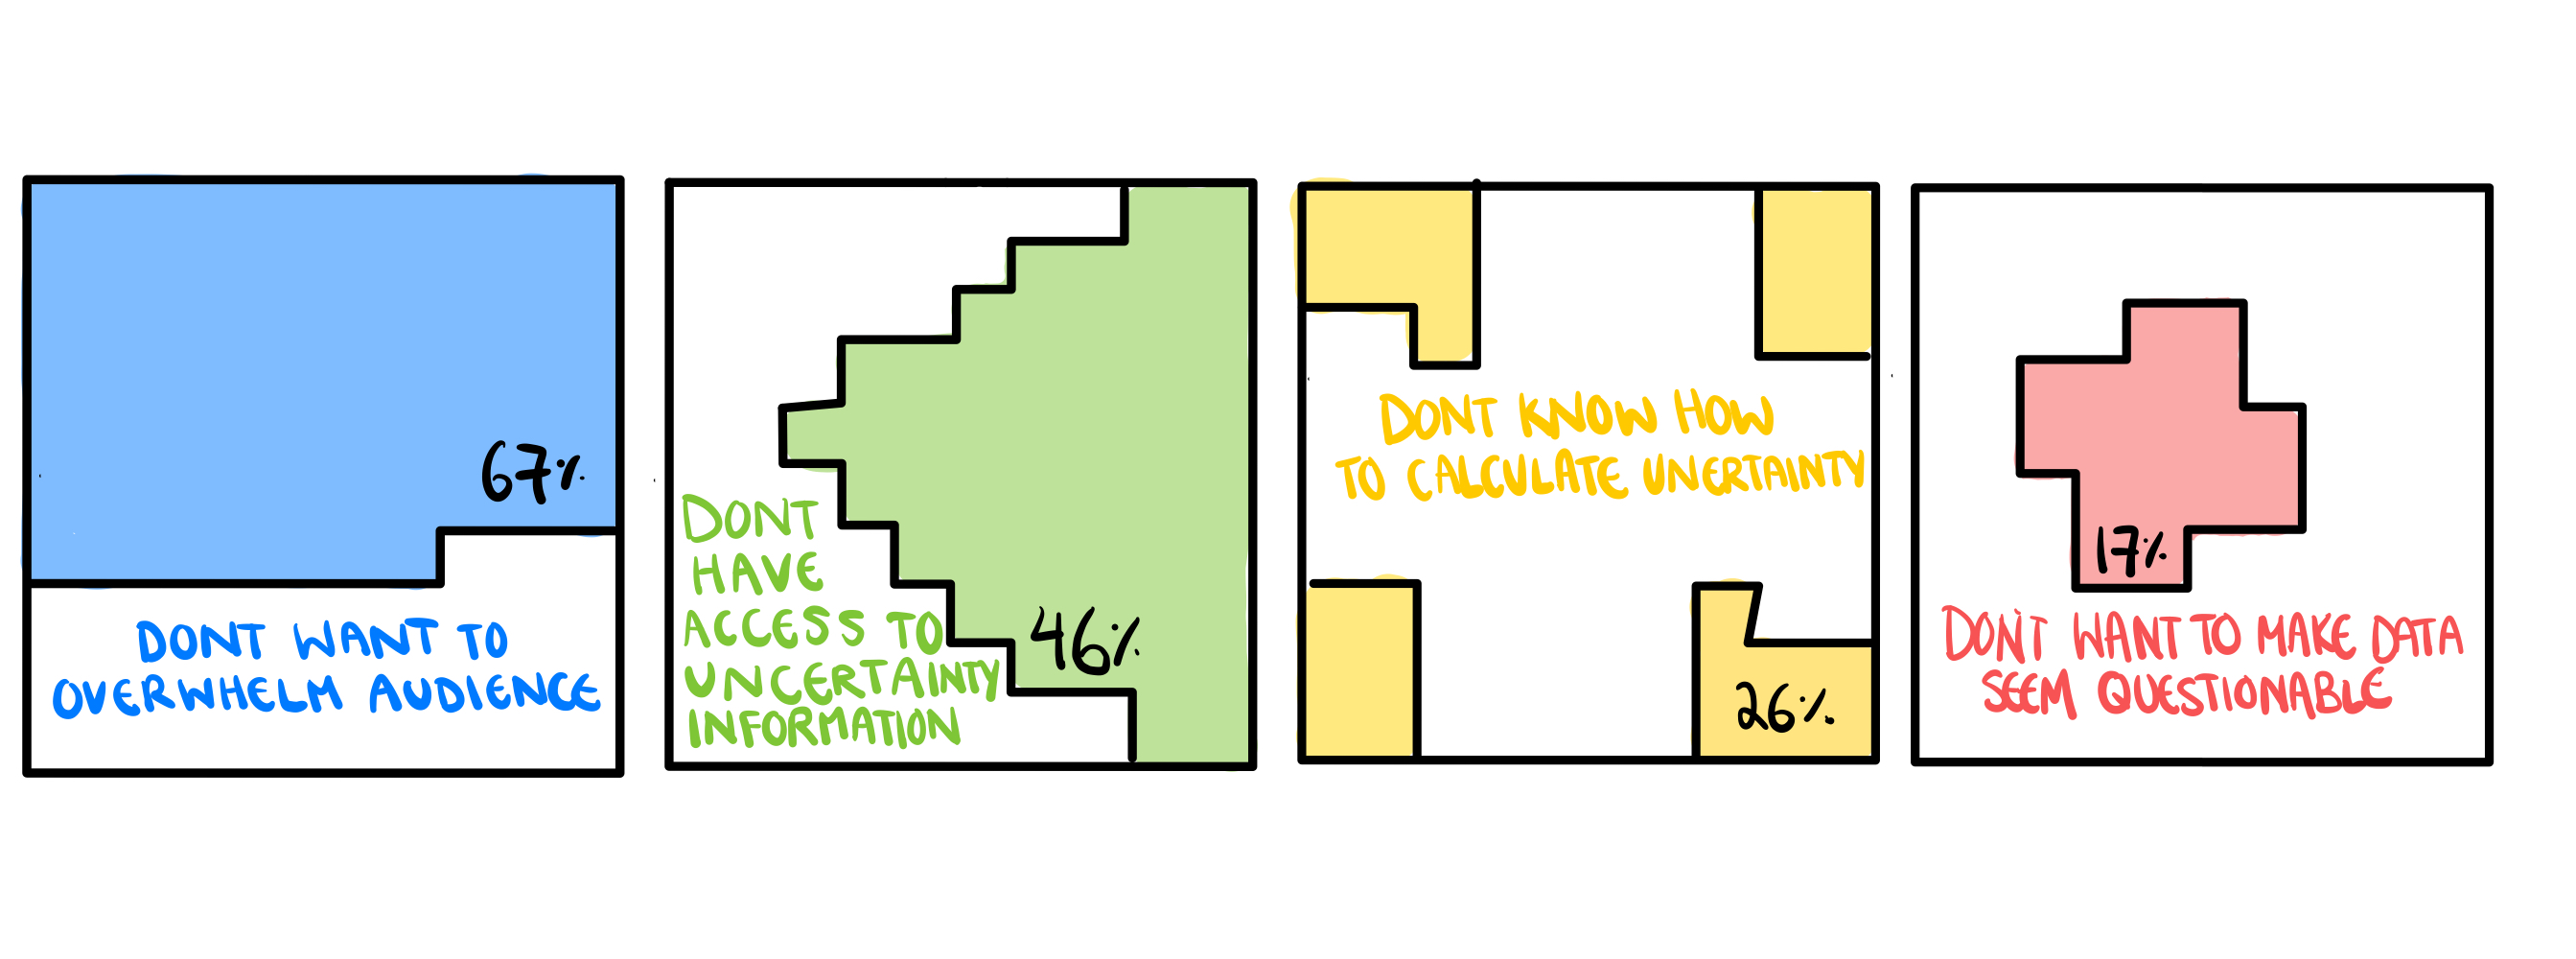 67%
DONT WANT TO
OVERWHELM AUDIENCE
DONT
HAVE
ACCESS TO
UNCERTAINTY
INFORMATION
46%
DONT KNOW HOW
TO CALCULATE UNERTAINTY
26%
17%
DON'T WANT TO MAKE DATA
SEEM QUESTIONABLE